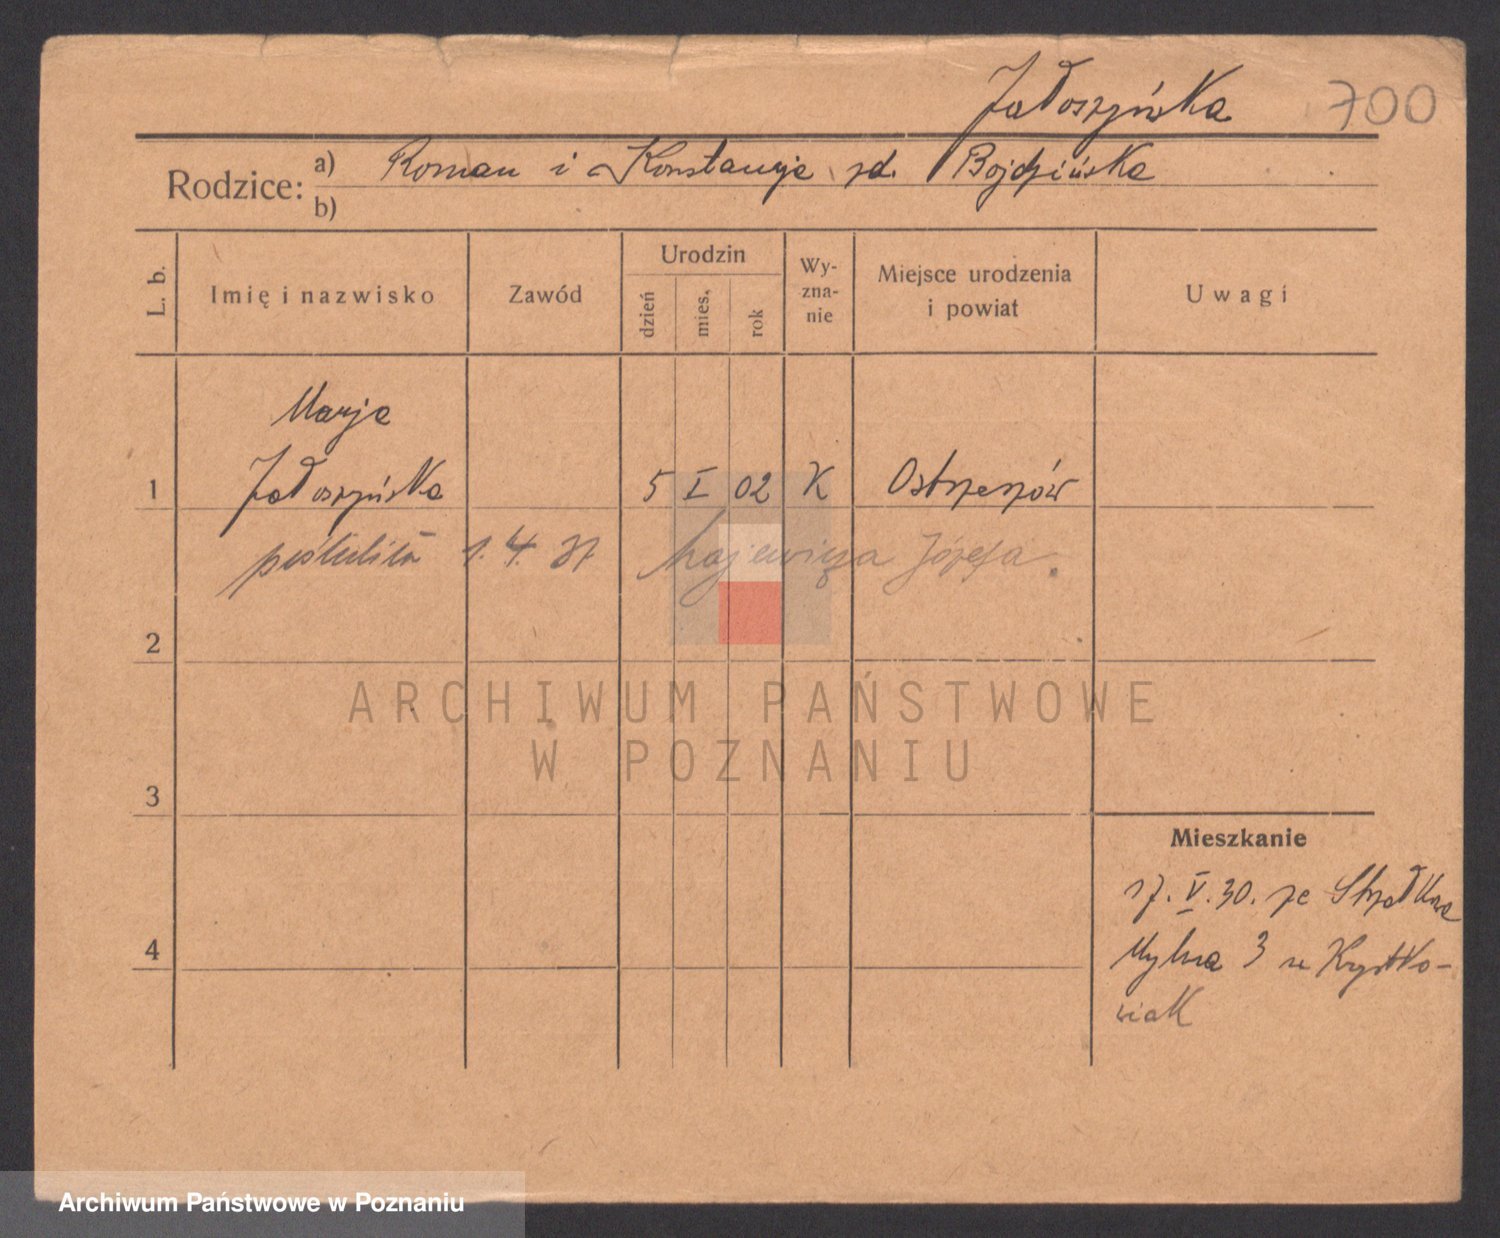 Jałoszyńska 700
Rodzice: a) Roman i Konstancja zd. Bojdzińska
b)
L. b. Imię i nazwisko Zawód Urodzin dzień mies. rok Wy-zna-nie Miejsce urodzenia i powiat Uwagi
Marja
1 Jałoszyńska 5 I 02 K Ostrzeszów
1. 4. 37 Józefa
2
ARCHIWUM PAŃSTWOWE
W POZNANIU
3
Mieszkanie
17. V. 30. ze Strzałkowa
4 Mylna 3 u Krystko-
wiak
Archiwum Państwowe w Poznaniu